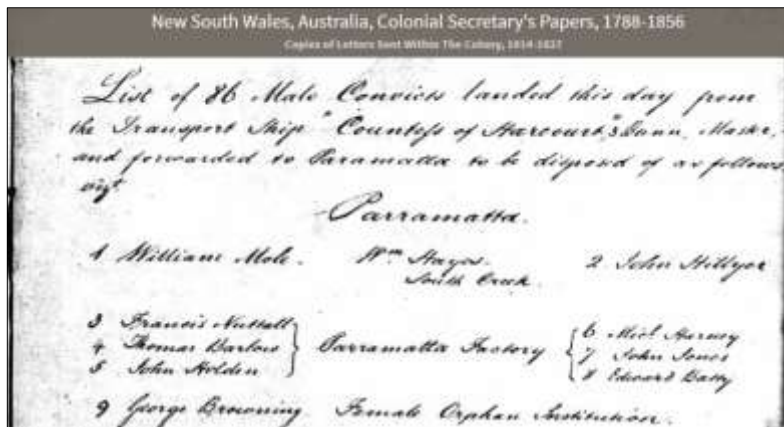 New South Wales, Australia, Colonial Secretary's Papers, 1788-1856
Copies of Letters Sent Within The Colony, 1814-1827
List of 86 Male Convicts landed this day from
the Transport Ship "Countess of Harcourt," Bunn, Master,
and forwarded to Paramatta to be disposed of as follows,
vizt
Parramatta.
1 William Mole. Wm Hayes. 2 John Hillyer
South Creek.
3 Francis Nuttall 6 Michl Harvey
4 Thomas Barlow Parramatta Factory 7 John Jones
5 John Holden 8 Edward Batty
9 George Browning Female Orphan Institution.